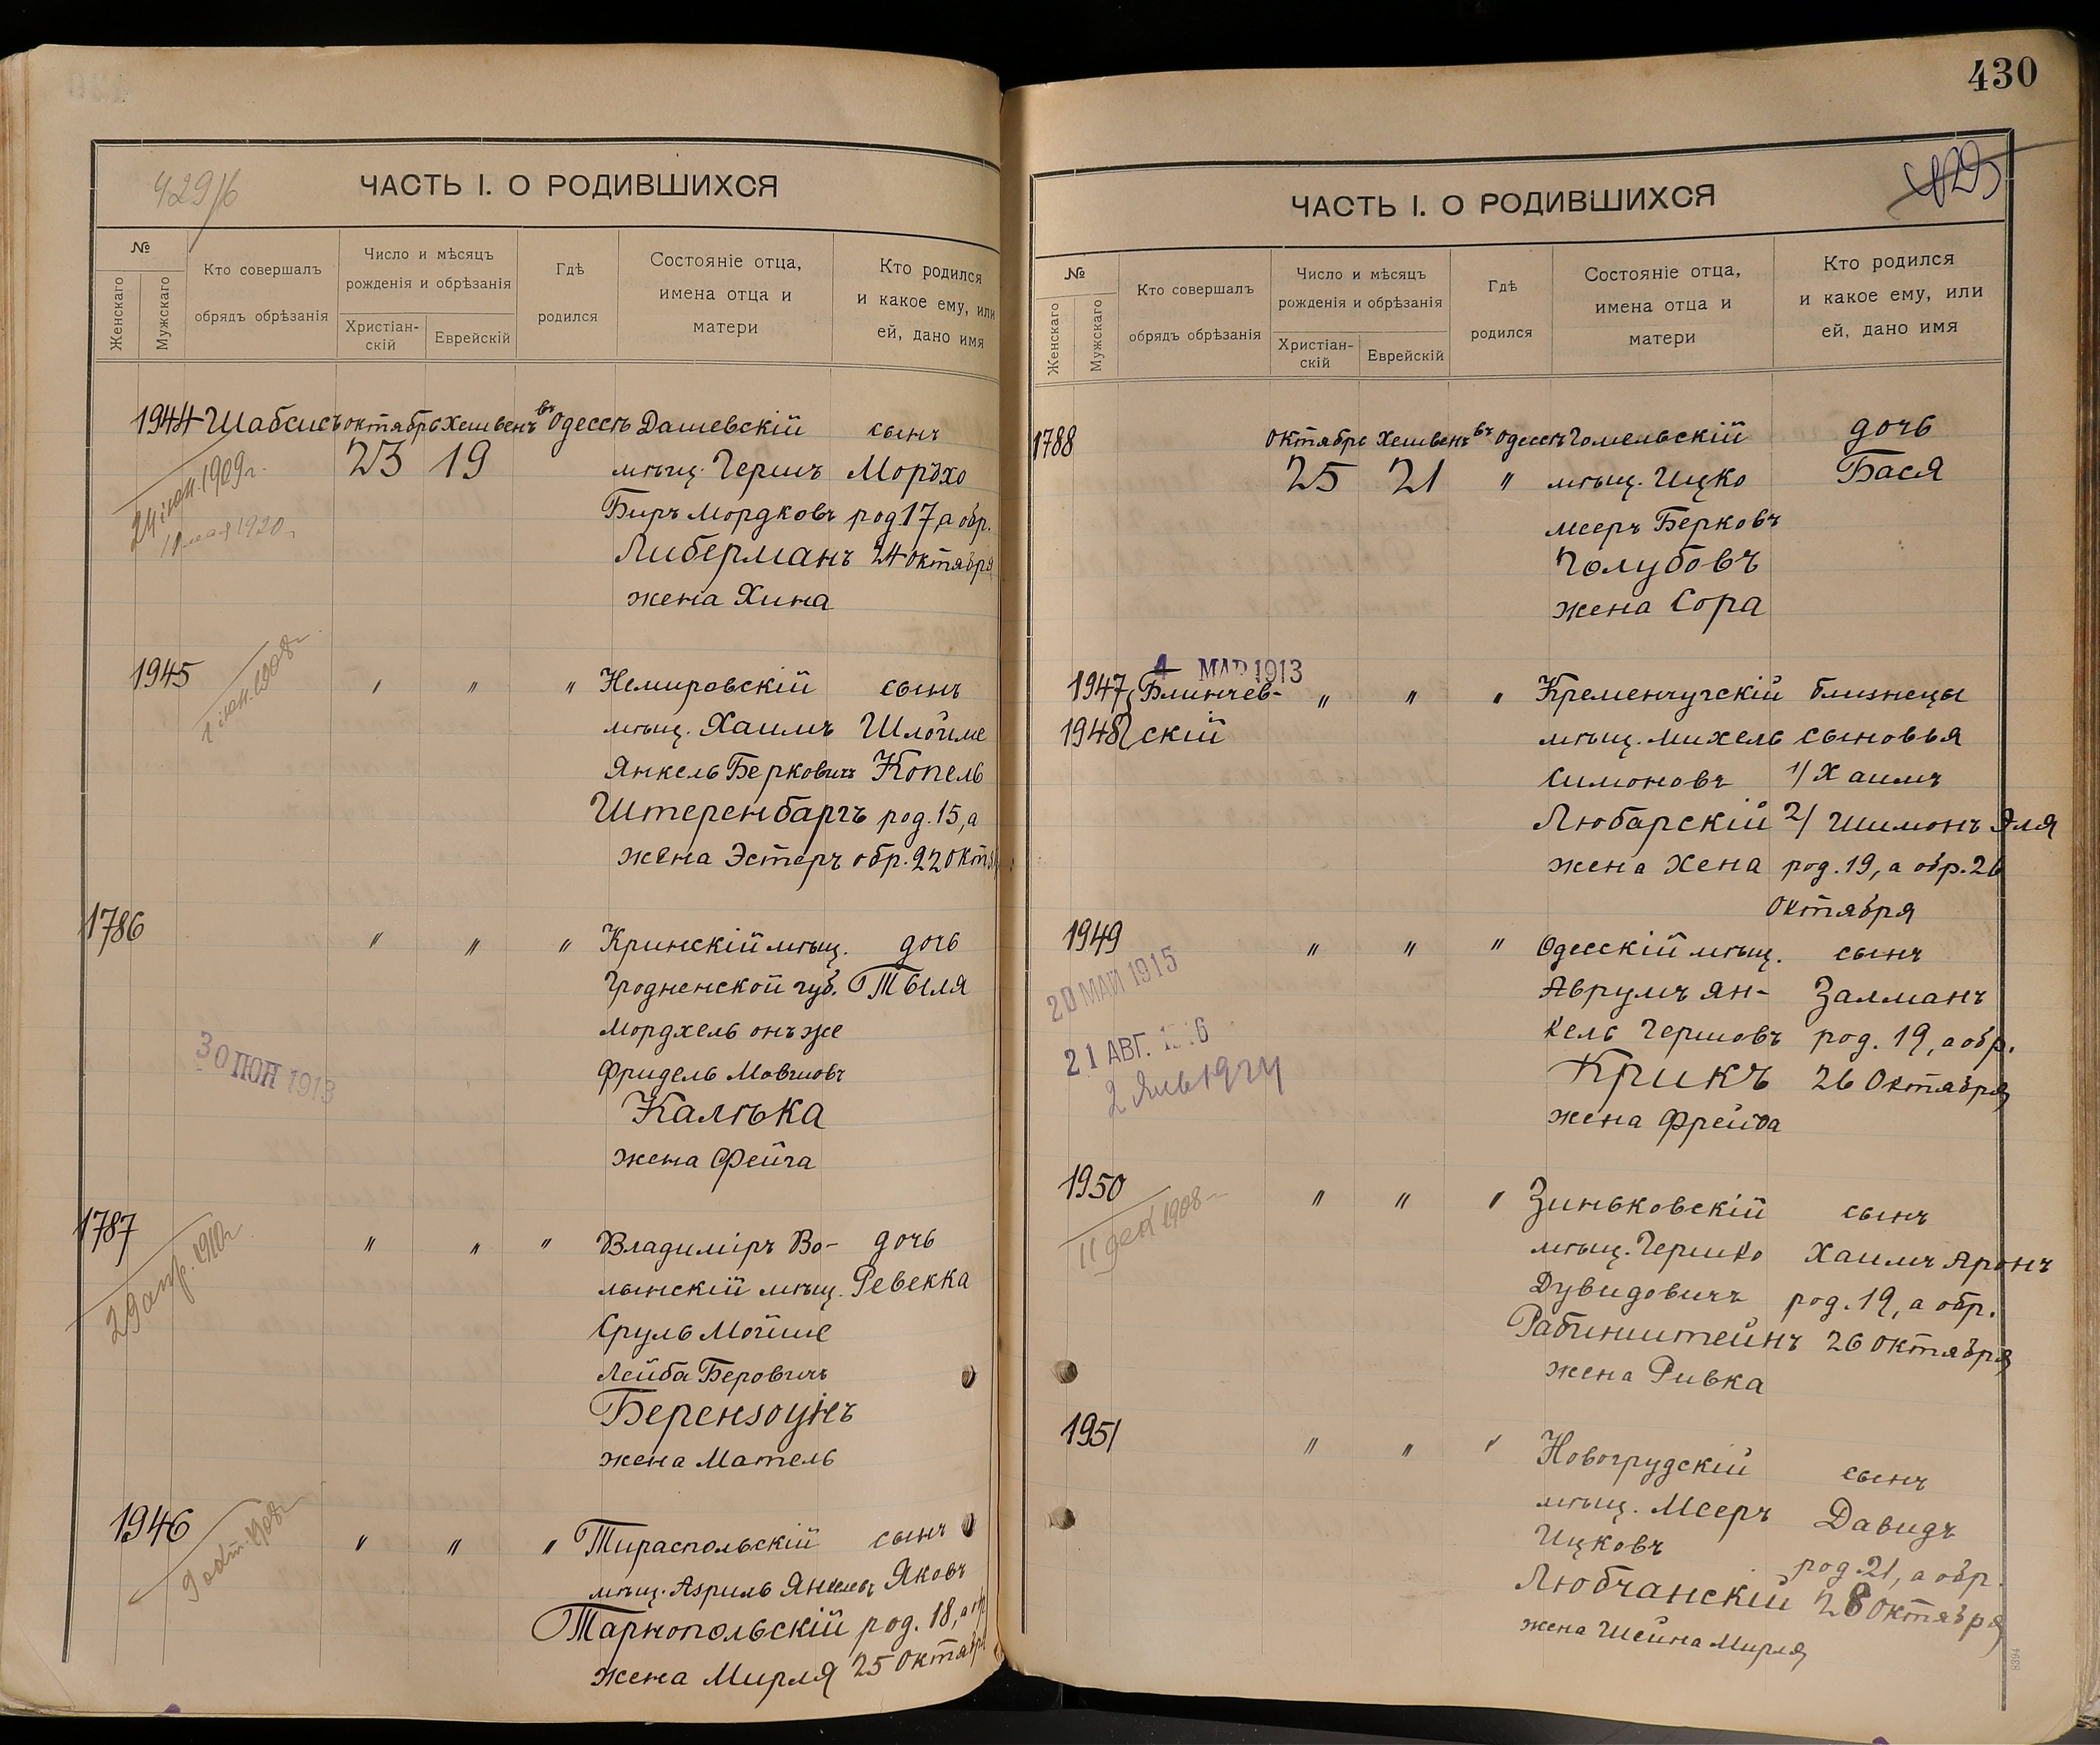 430
429/б
ЧАСТЬ I. О РОДИВШИХСЯ
№
Женскаго
Мужскаго
Кто совершалъ
обрядъ обрѣзанія
Число и мѣсяцъ
рожденія и обрѣзанія
Христіан-
скій
Еврейскій
Гдѣ
родился
Состояніе отца,
имена отца и
матери
Кто родился
и какое ему, или
ей, дано имя
1944 Шабсисъ октябрь Хешвенъ въ Одессѣ Дашевскій сынъ
23 19 мѣщ. Гершъ Мордхо
Биръ Мордковъ род 17, а обр.
Либерманъ 24 октября
жена Хина
24 іюн. 1909 г.
11 мая 1920 г.
1945 " " " Немировскій сынъ
мѣщ. Хаимъ Шлойме
Янкель Берковичъ Копель
Штеренбаргъ род. 15, а
жена Эстеръ обр. 22 окт
1 іюн. 1908 г.
1786 " " " Кринскій мѣщ. дочь
Гродненской губ. Тыля
Мордхель онъ же
Фридель Мовшовъ
Калѣка
жена Фейга
30 ІЮН 1913
1787 " " " Владиміръ Во- дочь
лынскій мѣщ. Ревекка
Сруль Мойше
Лейба Беровичъ
Берензонъ
жена Матель
29 апр. 1910 г.
1946 " " " Тираспольскій сынъ
мѣщ. Азриль Янкелевъ Яковъ
Тарнопольскій род. 18, а обр
жена Мирля 25 октября
9 окт. 1908 г.
429
ЧАСТЬ I. О РОДИВШИХСЯ
№
Женскаго
Мужскаго
Кто совершалъ
обрядъ обрѣзанія
Число и мѣсяцъ
рожденія и обрѣзанія
Христіан-
скій
Еврейскій
Гдѣ
родился
Состояніе отца,
имена отца и
матери
Кто родился
и какое ему, или
ей, дано имя
1788 Октябрь Хешвенъ въ Одессѣ Гомельскій дочь
25 21 " мѣщ. Ицко Бася
Мееръ Берковъ
Голубовъ
жена Сора
4 МАР 1913
1947 Блинчев- " " " Кременчугскій близнецы
1948 скій мѣщ. Михель сыновья
Симоновъ 1/ Хаимъ
Любарскій 2/ Шимонъ Эля
жена Хена род. 19, а обр. 26
Октября
1949 " " " Одесскій мѣщ. сынъ
Аврумъ Ян- Залманъ
кель Гершовъ род. 19, а обр.
Крикъ 26 Октября
жена Фрейда
20 МАЙ 1915
21 АВГ. 1916
1950 " " " Зиньковскій сынъ
мѣщ. Гершко Хаимъ Аронъ
Дувидовичъ род. 19, а обр.
Рабинштейнъ 26 октября
жена Ривка
11 дек 1908
1951 " " " Новогрудскій сынъ
мѣщ. Мееръ Давидъ
Ицковъ род. 21, а обр.
Любчанскій 28 Октября
жена Шейна Мирля
8394